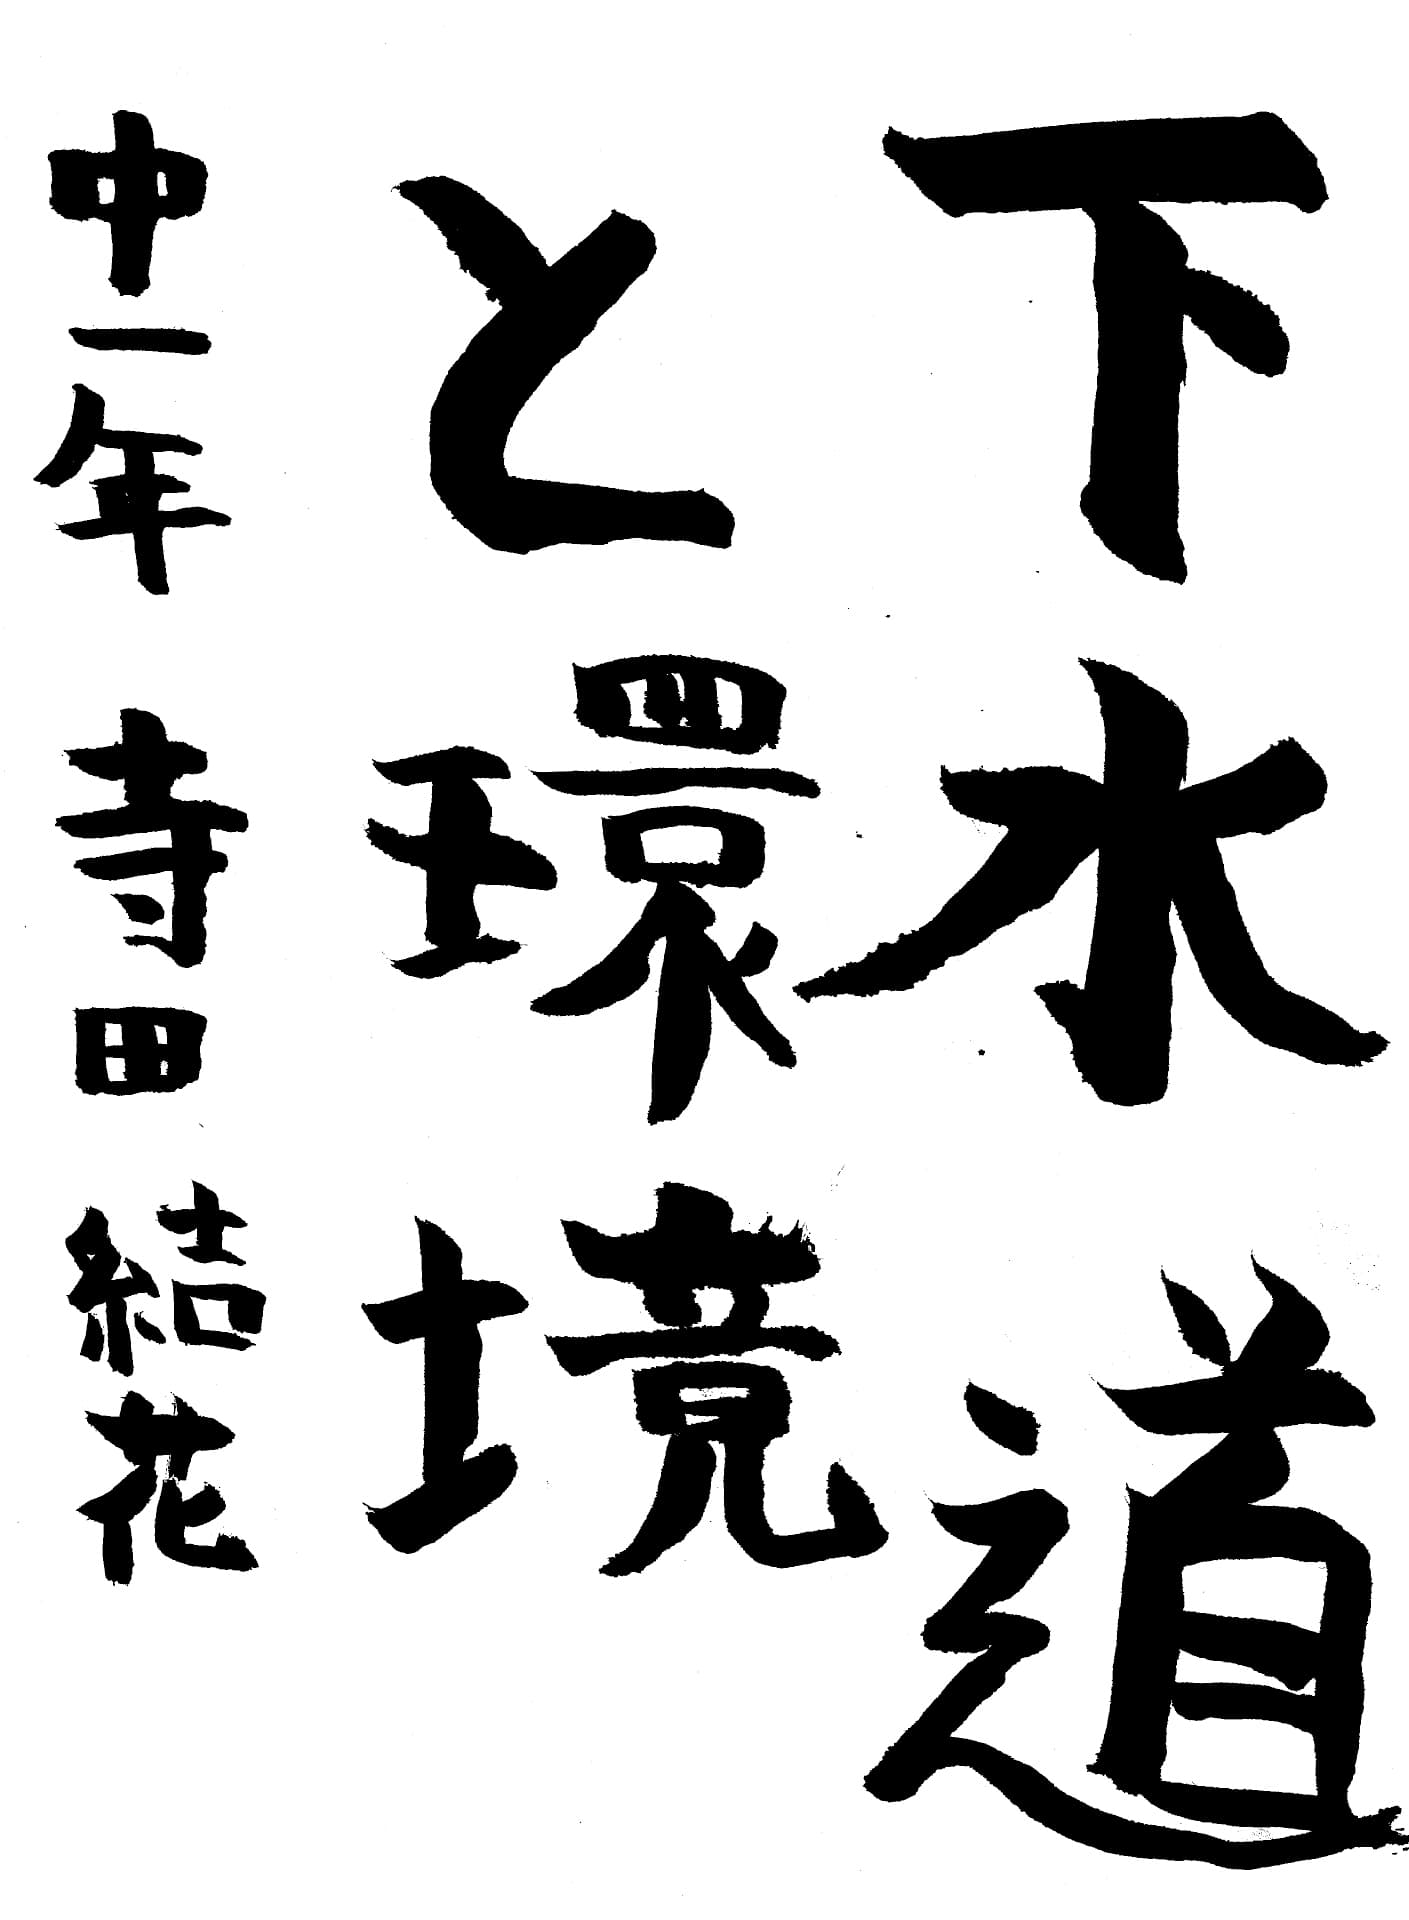 下水道
と環境
中一年 寺田結花